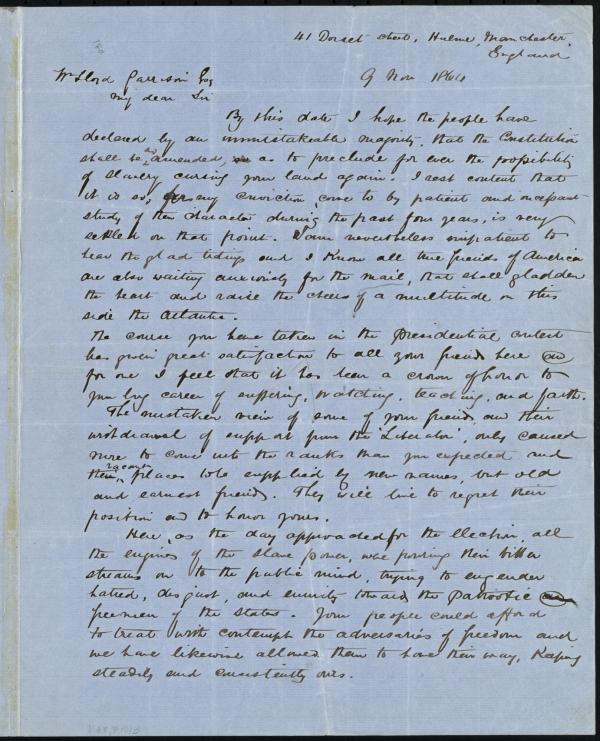 41 Dorset street, Hulme, Manchester,
England
9 Nov 1864
Wm Lloyd Garrison Esq
My dear Sir
By this date I hope the people have
declared by an unmistakeable majority, that the Constitution
shall be so amended, as to preclude for ever the possibility
of Slavery cursing your land again. I rest content that
it is so, for my conviction, come to by patient and
study of the character during the past four years, is very
settled on that point. I am nevertheless impatient to
hear the glad tidings and I know all true friends of America
are also waiting anxiously for the mail, that shall gladden
the heart and raise the cheers of a multitude on this
side the Atlantic.
The course you have taken in the Presidential contest
has given great satisfaction to all your friends here
for one I feel that it has been a crown of honor to
your long career of suffering, watching, teaching, and faith.
The mistaken view of some of your friends and their
withdrawal of support from the 'Liberator', only caused
more to come into the ranks than you expected and
their vacant places to be supplied by new names, but old
and earnest friends. They will live to regret their
position and to honor yours.
Here, as the day approached for the election, all
the engines of the slave power, were pouring their bitter
streams on to the public mind, trying to engender
hatred, disgust, and enmity toward the Patriotic
freemen of the States. Your people could afford
to treat with contempt the adversaries of freedom and
we have likewise allowed them to have their way, keeping
steadily and consistently ours.